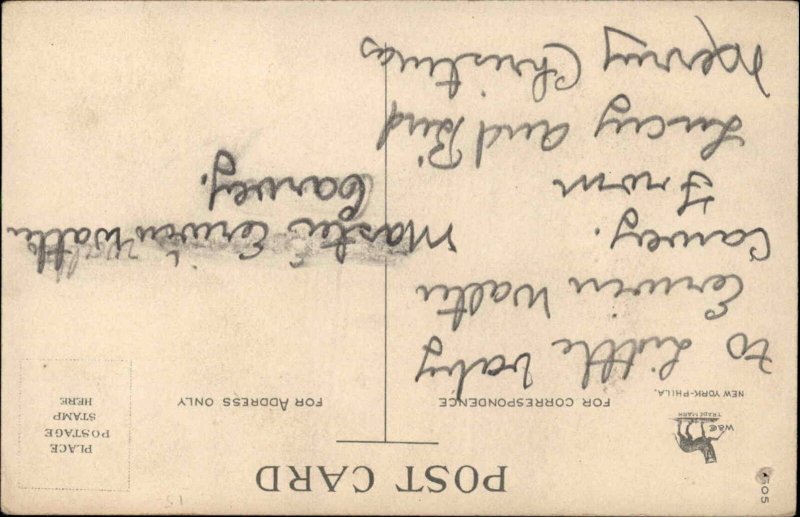 POST CARD
505
W&C
TRADE MARK
NEW YORK-PHILA.
FOR CORRESPONDENCE
FOR ADDRESS ONLY
PLACE
POSTAGE
STAMP
HERE
to Little baby
Erwin Walter
Carvey.
From
Lucy and Bird
Merry Christmas
Master Erwin Walter
Carvey.